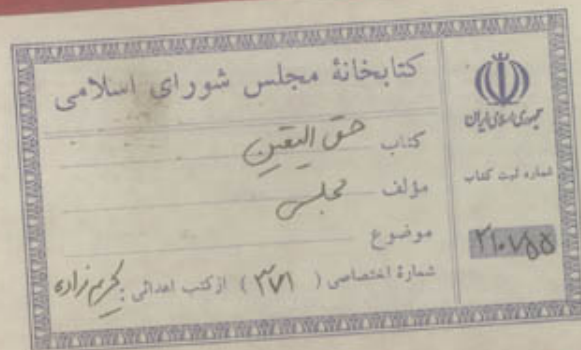 کتابخانهٔ مجلس شورای اسلامی
کتاب حق الیقین
مؤلف مجلسی
موضوع
شمارهٔ اختصاصی ( ۳۷۱ ) از کتب اهدائی : کریم زاده
جمهوری اسلامی ایران
شماره ثبت کتاب
۲۱۰۷۵۵